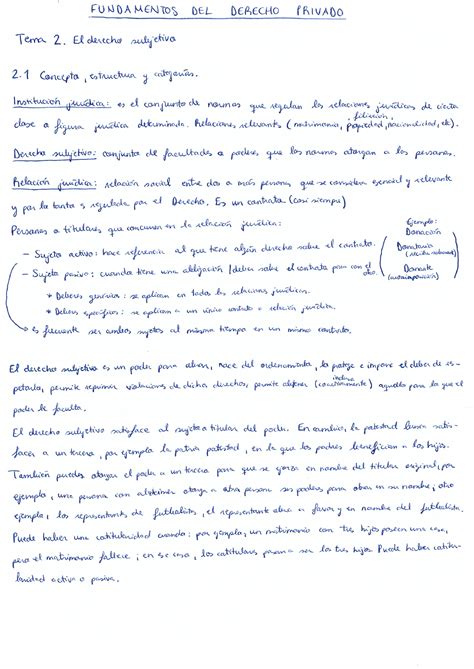 FUNDAMENTOS DEL DERECHO PRIVADO
Tema 2. El derecho subjetivo
2.1 Concepto, estructura y categorías.
Institución jurídica: es el conjunto de normas que regulan las relaciones jurídicas de cierta
filiación,
clase o figura jurídica determinada. Relaciones relevants (matrimonio, propiedad, nacionalidad, etc).
Derecho subjetivo: conjunto de facultades o poderes que las normas otorgan a las personas.
Relación jurídica: relación social entre dos o más personas que se considera esencial y relevante
y por lo tanto es regulada por el Derecho. Es un contrato (casi siempre)
Personas o titulares que concurren en la relación jurídica:
Ejemplo:
Donación
- Sujeto activo: hace referencia al que tiene algún derecho sobre el contrato.
Donatario
(recibe)
- Sujeto pasivo: cuando tiene una obligación/deber sobre el contrato para con el otro.
Donante
* Deberes genéricos: se aplican en todas las relaciones jurídicas.
* Deberes específicos: se aplican a un único contrato o relación jurídica.
es frecuente ser ambos sujetos al mismo tiempo en un mismo contrato.
El derecho subjetivo es un poder para obrar, nace del ordenamiento, lo protege e impone el deber de res-
petarlo, permite reprimir violaciones de dichos derechos, permite obtener (coactivamente) aquello para lo que el
incluso
poder le faculta.
El derecho subjetivo satisface al sujeto o titular del poder. En cambio, la potestad busca satis-
facer a un tercero, por ejemplo la patria potestad, en la que los padres benefician a los hijos.
También puedes otorgar el poder a un tercero para que se ejerza en nombre del titular original, por
ejemplo, una persona con alzheimer otorga a otra persona sus poderes para obrar en su nombre; otro
ejemplo, los representants de futbolistas, el representante obra a favor y en nombre del futbolista.
Puede haber una cotitularidad cuando: por ejemplo, un matrimonio con tres hijos poseen una casa,
pero el matrimonio fallece; en ese caso, los cotitulares pasan a ser los tres hijos. Puede haber cotitu-
laridad activa o pasiva.